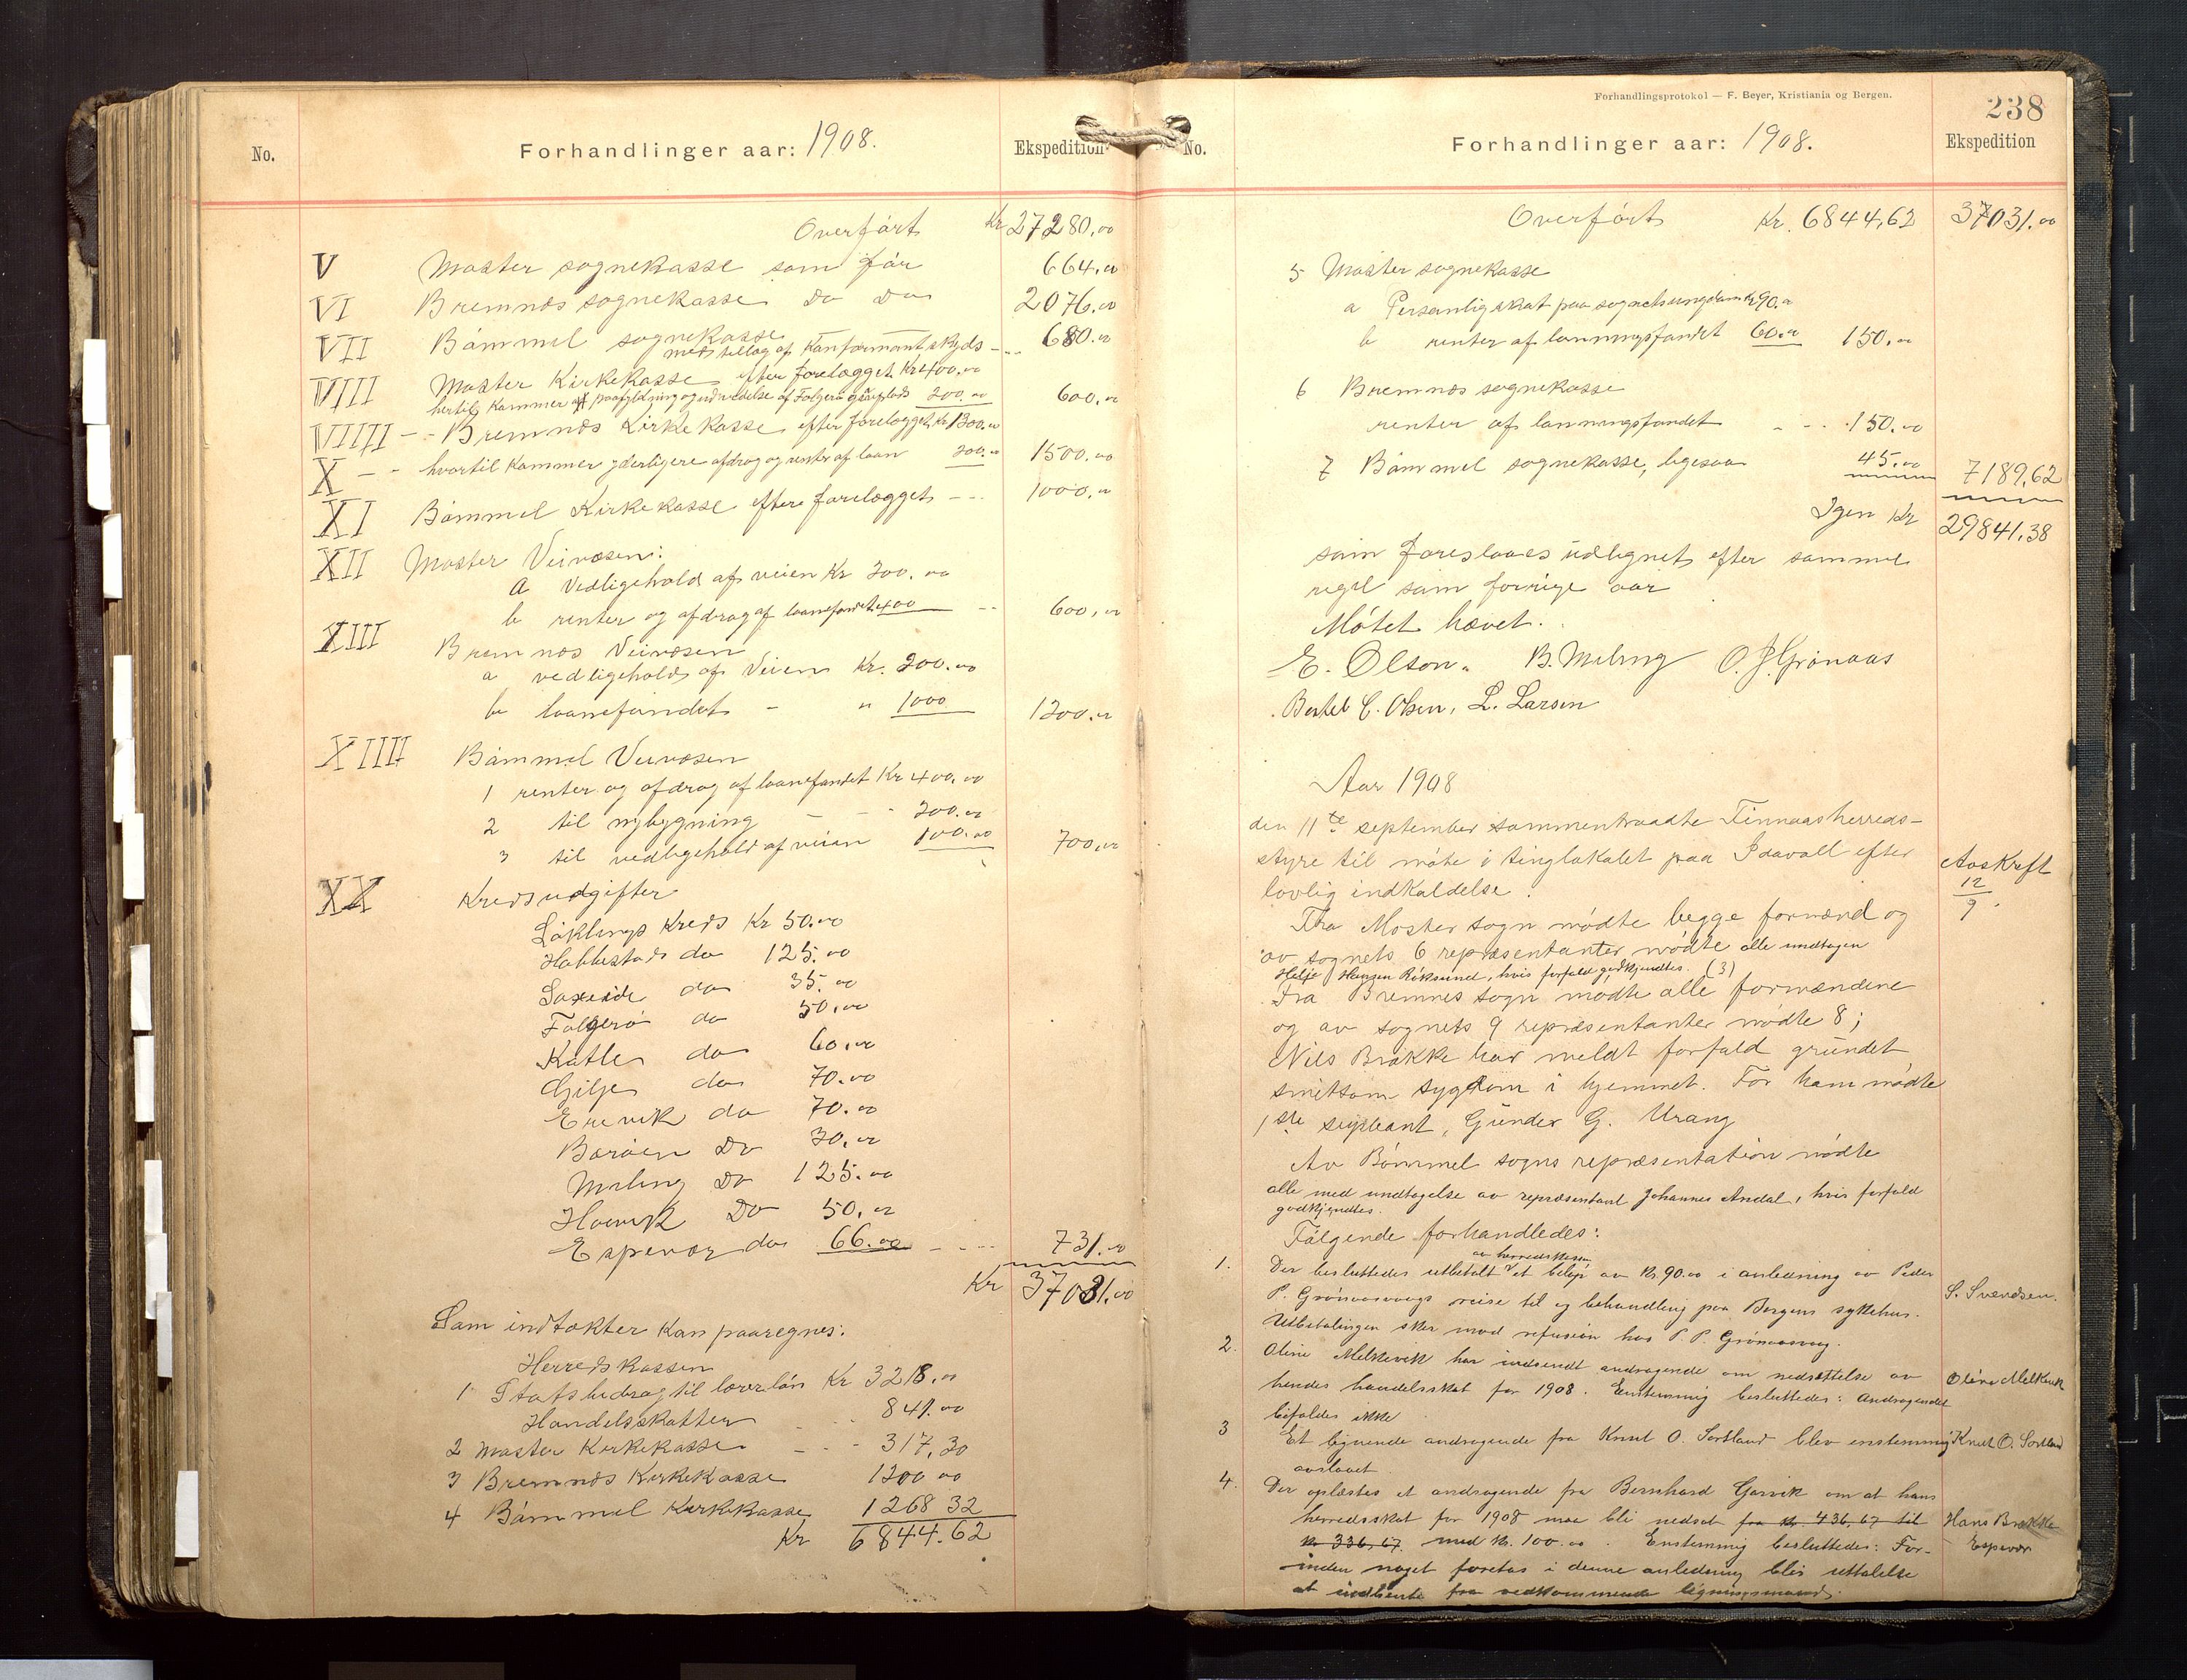 No.
Forhandlinger aar: 1908.
Ekspedition
Overført Kr 27280.00
V Moster sognekasse som før 664.00
VI Bremnes sognekasse Do Do 2076.00
VII Bømmel sognekasse
med tillæg af Konfirmantskyds - 680.00
VIII Moster Kirkekasse efter forelægget Kr 400.00
hertil Kommer paafyldning og udvidelse af Folgerø 200.00 600.00
VIIII - - Bremnes Kirkekasse efter forelægget Kr 1300.00
X - - hvortil Kommer yderligere afdrag og renter af laan 200.00 1500.00
XI Bømmel Kirkekasse efter forelægget - - - 1000.00
XII Moster Veivæsen:
a Vedligehold af veien Kr 200.00
b renter og afdrag af laanefondet 400 - - 600.00
XIII Bremnes Veivæsen
a vedligehold af Veien Kr. 200.00
b laanefondet - " 1000 1200.00
XIIII Bømmel Veivæsen
1 renter og afdrag af laanefondet Kr 400.00
2 til nybygning - - 200.00
3 til vedligehold af veien 100.00 700.00
XX Kredsudgifter
Løklings Kreds Kr 50.00
Habbestad do 125.00
Saxeide do 35.00
Folgerø do 50.00
Katle do 60.00
Gilje do 70.00
Erevik do 70.00
Barøen Do 30.00
Meling Do 125.00
Hovvik Do 50.00
Espevær do 66.00 - - - 731.00
Kr 37031.00
Som indtækter kan paaregnes:
Herredskassen
1 Statsbidrag til lærerløn Kr 3218.00
Handelsskatten - - 841.00
2 Moster Kirkekasse - - - 317,30
3 Bremnes Kirkekasse 1200 00
4 Bømmel Kirkekasse 1268 32
Kr 6844.62
Forhandlingsprotokol — F. Beyer, Kristiania og Bergen.
238
No.
Forhandlinger aar: 1908.
Ekspedition
Overført Kr. 6844,62 37031.00
5 Moster sognekasse
a Personlig skat paa sognets ungdom Kr 90.00
b renter af lønningsfondet 60.00 150.00
6 Bremnes sognekasse
renter af lønningsfondet - - - 150.00
7 Bømmel sognekasse, ligesaa 45.00 7189,62
Igen Kr 29841,38
som foreslaaes udlignet efter samme
regel som forrige aar
Møtet hævet.
E. Olson. B. Meling O. J. Grønaas
Bertel C. Olsen, L. Larsen
Aar 1908
den 11te september sammentraadte Finnaas herreds-
styre til møte i tinglokalet paa Idavoll efter
lovlig indkaldelse.
Avskreft
12/9.
Fra Moster sogn mødte begge formænd og
av sognets 6 repræsentanter mødte alle undtagen
Helje Hansen Røksund, hvis forfald godkjendtes. (3)
Fra Bremnes sogn mødte alle formændene
og av sognets 9 repræsentanter mødte 8;
Nils Brakke har meldt forfald grundet
smitsom sygdom i hjemmet. For ham mødte
1ste supleant, Gunder G. Urang
Av Bømmel sogns repræsentation mødte
alle med undtagelse av repræsentant Johannes Andal, hvis forfald
godkjendtes.
Følgende forhandledes:
av herredskassen
1. Der besluttedes utbetalt et beløp av Kr. 90.00 i anledning av Peder
P. Grønaasvaags reise til og behandling paa Bergens sykehus.
S. Svendsen.
Utbetalingen sker mod refusion hos P. P. Grønaasvaag.
2. Oline Melkevik har indsendt andragende om nedsættelse av
hendes handelsskat for 1908. Enstemmig besluttedes: Andragendet
Oline Melkevik
bifaldes ikke
3 Et lignende andragende fra Knut O. Sortland blev enstemmig
Knut O. Sortland
avslaaet.
4. Der oplæstes et andragende fra Bernhard Gorvik om at hans
herredsskat for 1908 maa bli nedsat fra kr. 436,67 til
Hans Brakke
kr 336,67. med kr. 100.00. Enstemmig besluttedes: For-
Espevær
inden noget foretas i denne anledning blir uttalelse
at indhente fra vedkommende ligningsmænd.